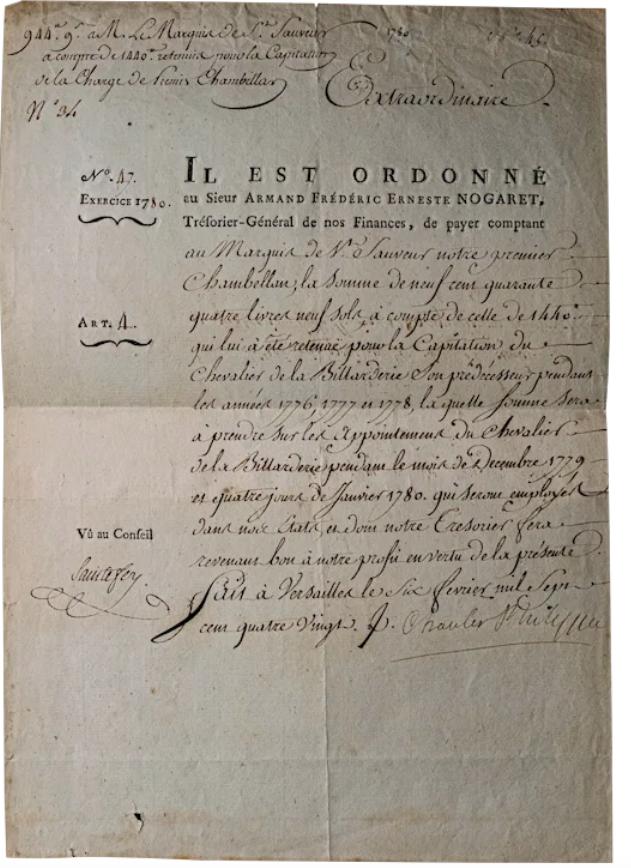 944.tt 9.s à M. Le Marquis de S.t Sauveur
à compte de 1440.tt retenus pour la Capitation
de la Charge de Premier Chambellan
N.o 34
1780
Extraordinaire.
N.o 47.
EXERCICE 1780.
IL EST ORDONNÉ
au Sieur ARMAND FRÉDÉRIC ERNESTE NOGARET,
Trésorier-Général de nos Finances, de payer comptant
au Marquis de S.t Sauveur notre premier
Chambellan, la Somme de neuf cent quarante
quatre livres neuf sols à compte de celle de 1440.tt
ART. 4.
qui lui à été retenue pour la Capitation du
Chevalier de la Billarderie Son prédécesseur pendant
les années 1776, 1777 et 1778, la quelle Somme Sera
à prendre Sur les Appointemens du Chevalier
de la Billarderie pendant le mois de Decembre 1779
et quatre jours de Janvier 1780. qui Seront employés
dans nos Etats, et dont notre Tresorier fera
revenant bon à notre profit en vertu de la présente.
Vû au Conseil
Saintefoy
Fait à Versailles le Six février mil Sept
cent quatre Vingt. Charles Philippe